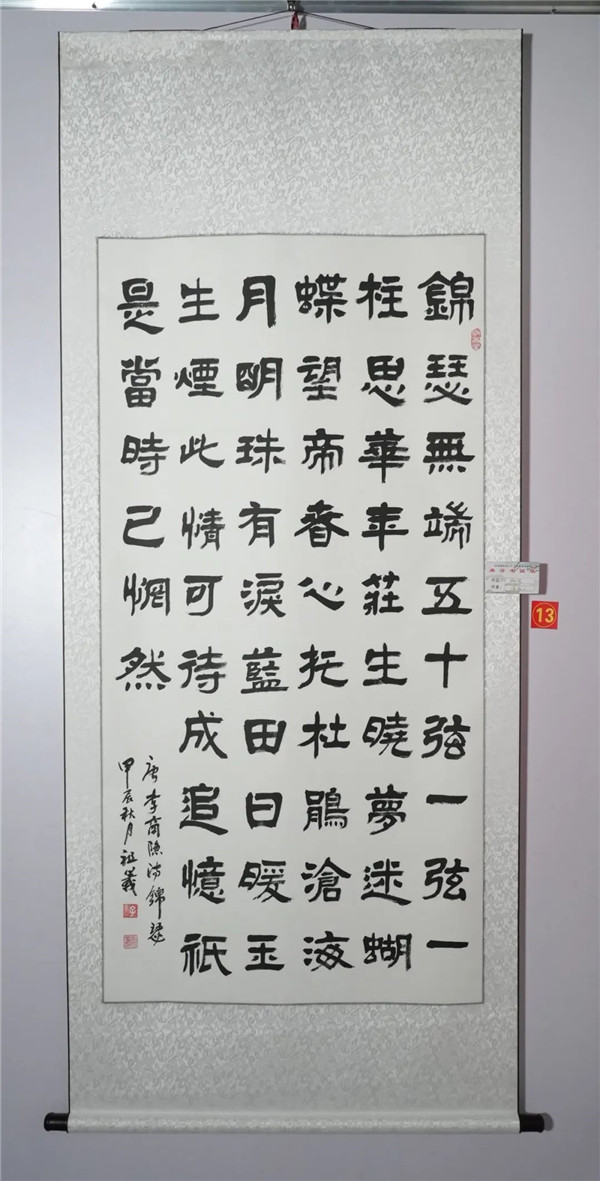 錦瑟無端五十弦一弦一
柱思華年莊生曉夢迷蝴
蝶望帝春心托杜鵑滄海
月明珠有淚藍田日暖玉
生煙此情可待成追憶祇
是當時已惘然
唐李商隱詩錦瑟
甲辰秋月祖義
13